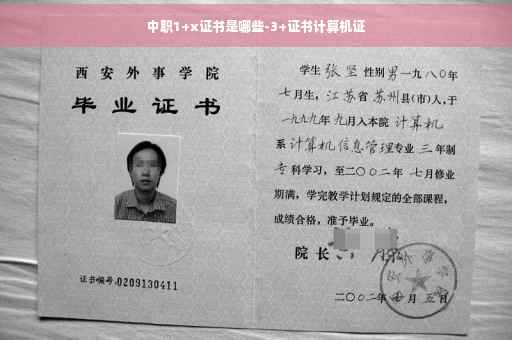 中职1+x证书是哪些-3+证书计算机证
西安外事学院
毕业证书
证书编号:0209130411
学生 张坚 性别 男 一九八〇年
七月生，江苏省 苏州县(市)人，于
一九九九年 九月入本院 计算机
系 计算机信息管理专业 三 年制
专科学习，至二〇〇二年 七月修业
期满，学完教学计划规定的全部课程，
成绩合格，准予毕业。
院长
二〇〇二年 月 五日